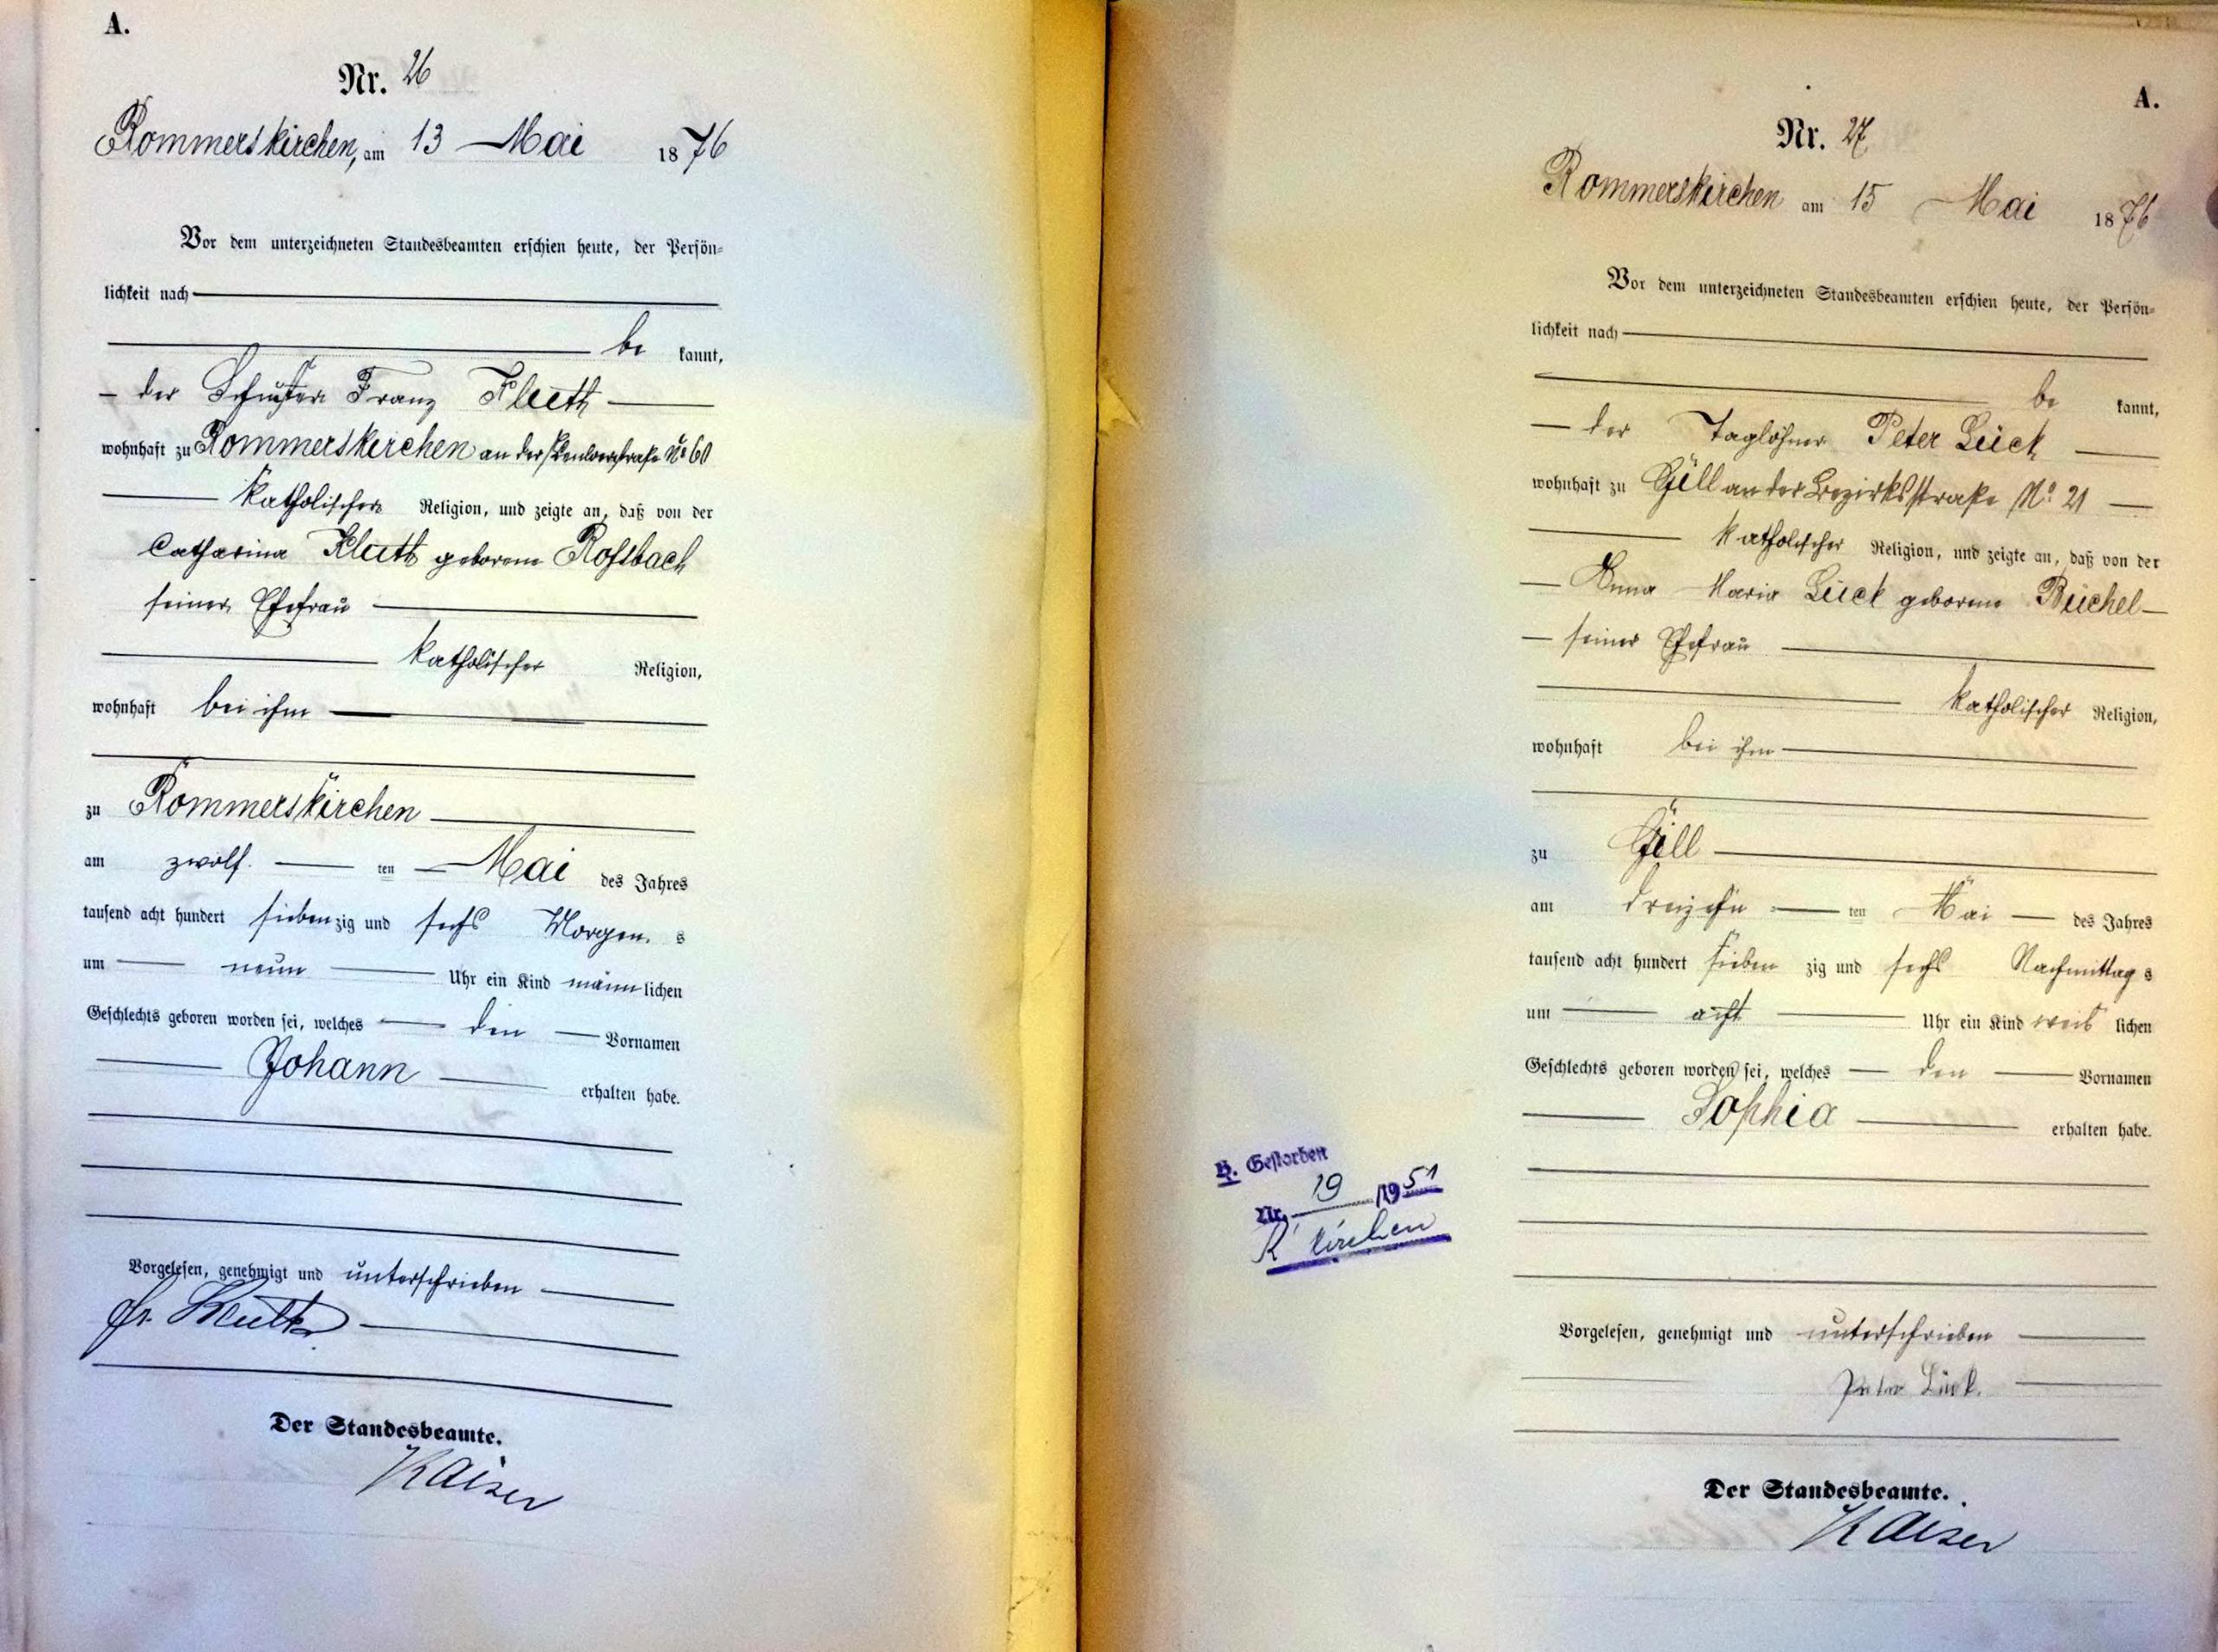 A.
Nr. 26
Rommerskirchen, am 13 Mai 1876
Vor dem unterzeichneten Standesbeamten erschien heute, der Persön-
lichkeit nach
be kannt,
der Schuster Franz Kluth
wohnhaft zu Rommerskirchen an der No 60
katholischer Religion, und zeigte an, daß von der
Catharina Kluth geborene Roßbach
seiner Ehefrau
katholischer Religion,
wohnhaft bei ihm
zu Rommerskirchen
am zwölf ten Mai des Jahres
tausend acht hundert sieben zig und sechs Morgen s
um neun Uhr ein Kind männ lichen
Geschlechts geboren worden sei, welches den Vornamen
Johann erhalten habe.
Vorgelesen, genehmigt und unterschrieben
Fr. Kluth
Der Standesbeamte.
Kaiser
A.
Nr. 27
Rommerskirchen am 15 Mai 1876
Vor dem unterzeichneten Standesbeamten erschien heute, der Persön-
lichkeit nach
be kannt,
der Taglöhner Peter Lück
wohnhaft zu Gill an der Bezirksstraße No. 21
katholischer Religion, und zeigte an, daß von der
Anna Maria Lück geborene Büchel
seiner Ehefrau
katholischer Religion,
wohnhaft bei ihm
zu Gill
am dreizehn ten Mai des Jahres
tausend acht hundert sieben zig und sechs Nachmittag s
um acht Uhr ein Kind weib lichen
Geschlechts geboren worden sei, welches den Vornamen
Sophia erhalten habe.
H. Gestorben
Nr. 19 /1951
R'kirchen
Vorgelesen, genehmigt und unterschrieben
Peter Lück.
Der Standesbeamte.
Kaiser